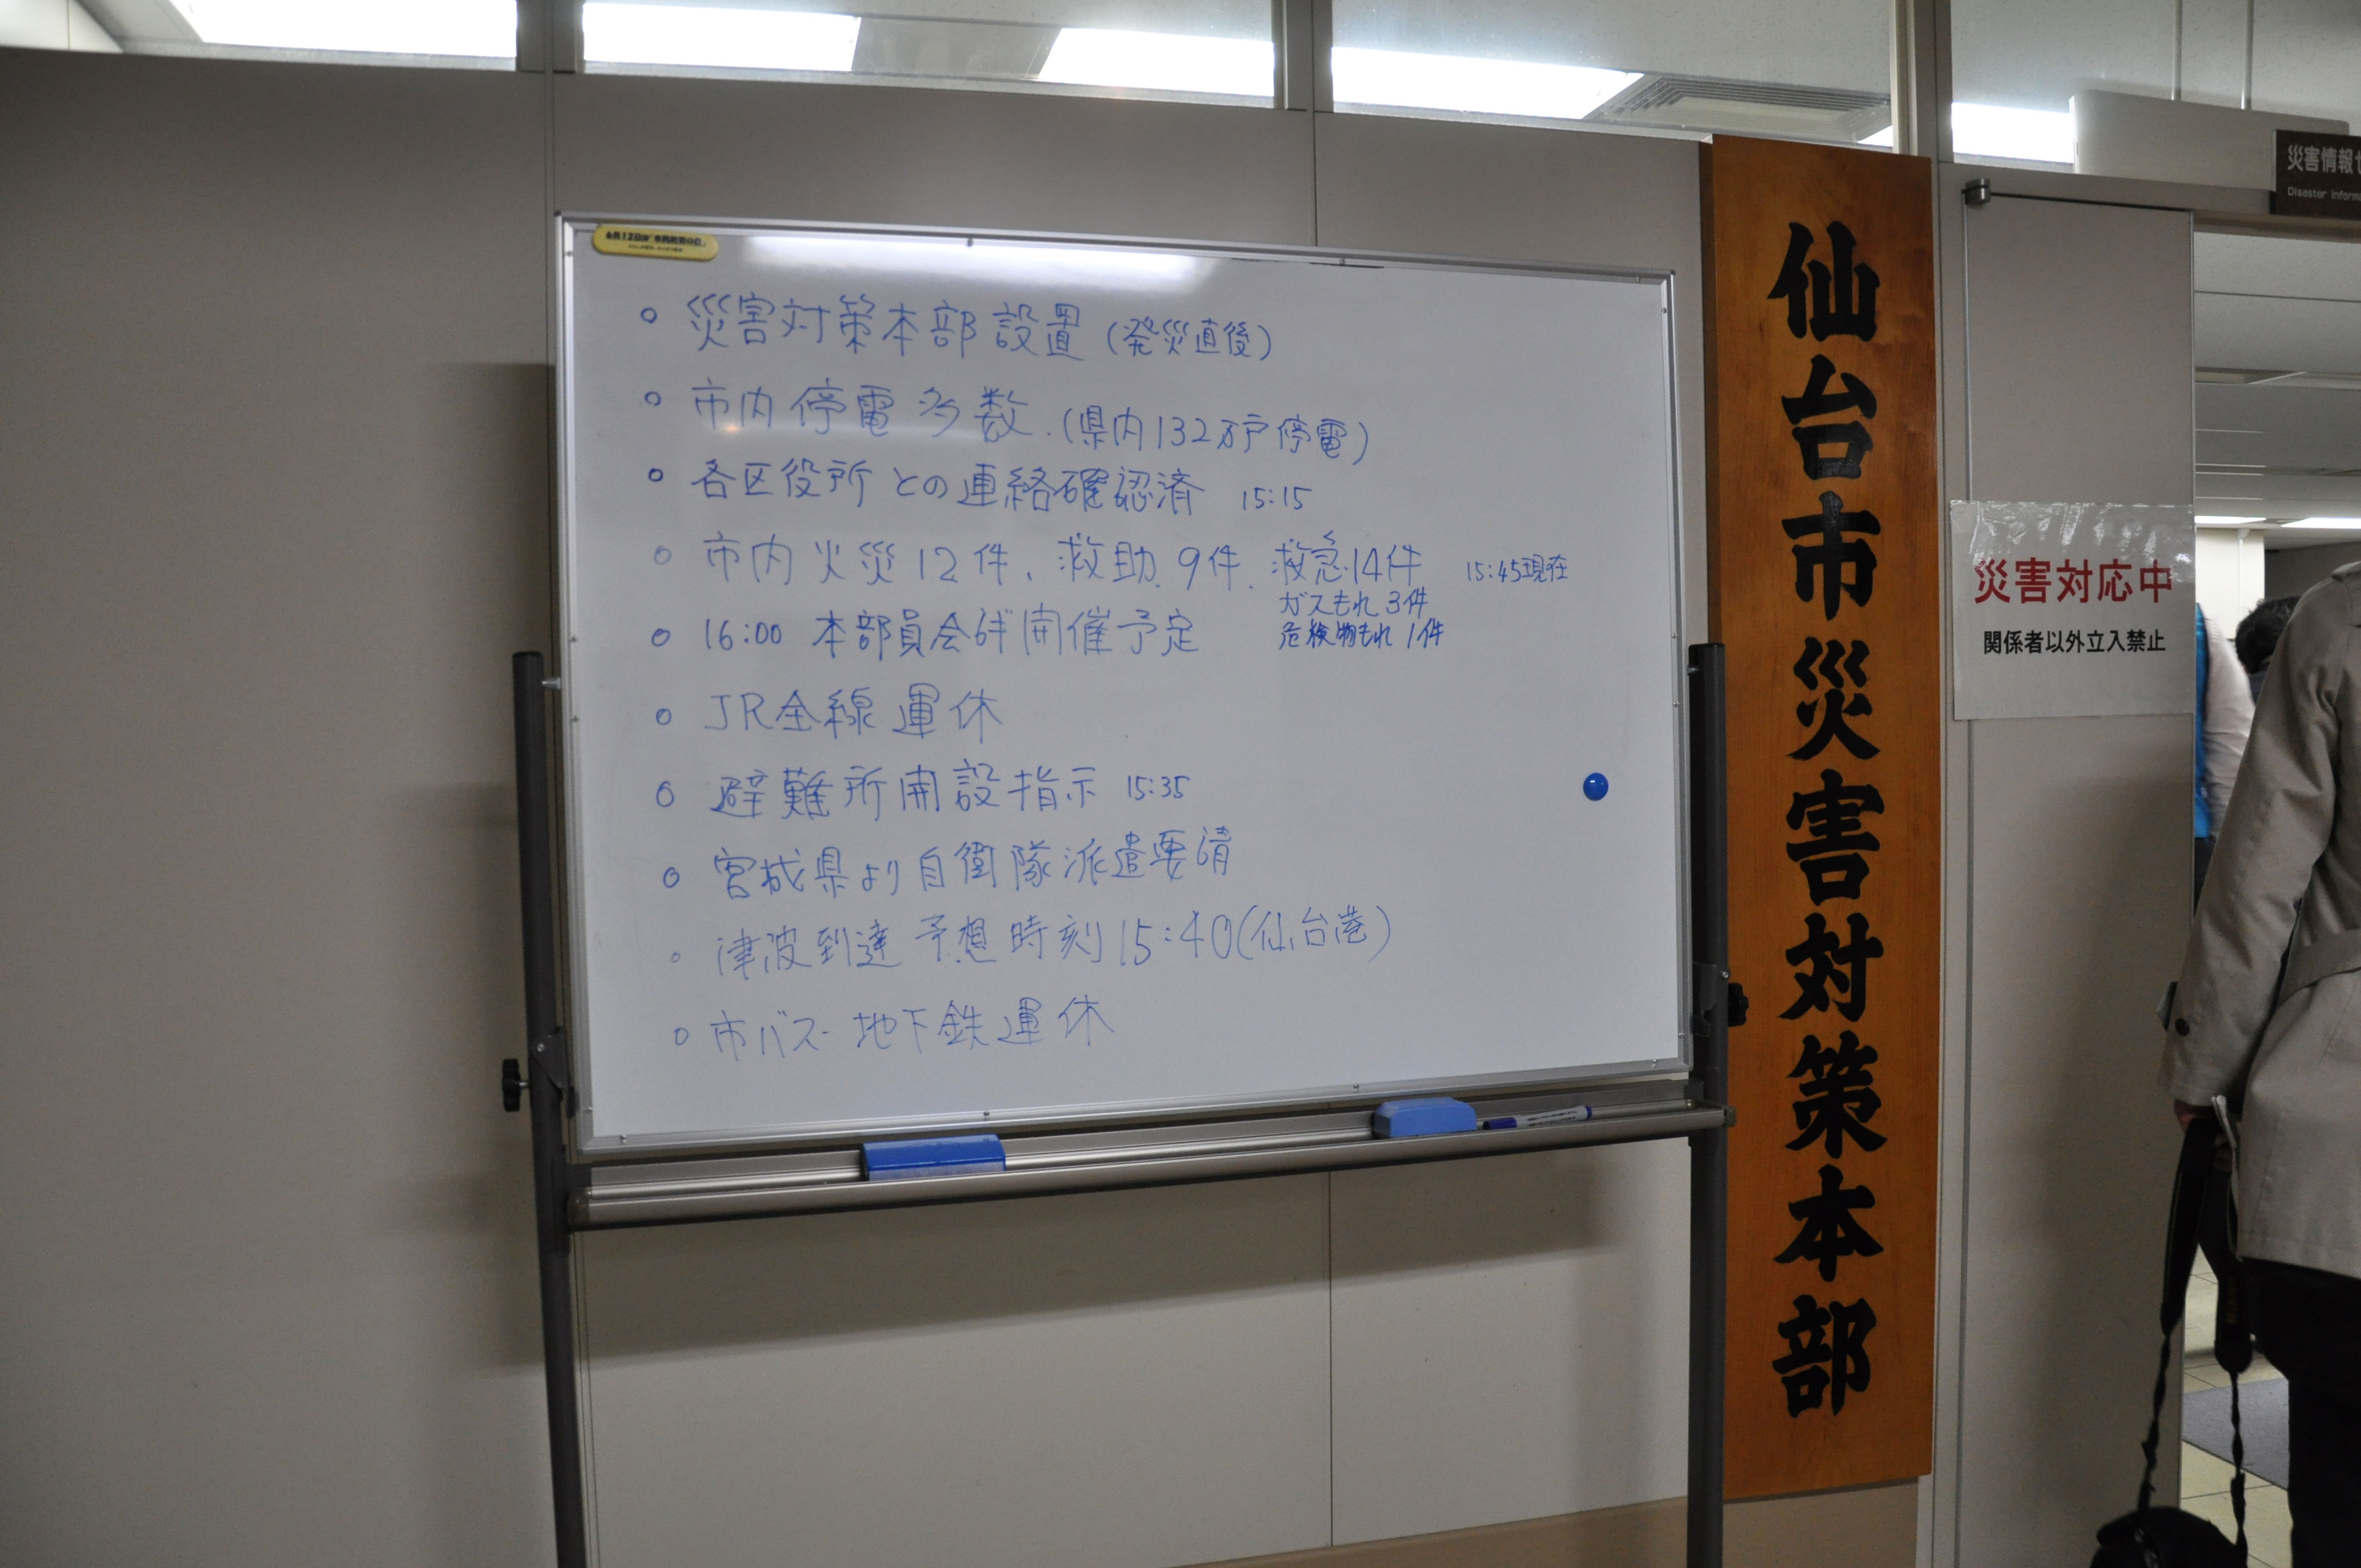 ○ 災害対策本部設置(発災直後)
○ 市内停電多数.(県内132万戸停電)
○ 各区役所との連絡確認済 15:15
○ 市内火災12件、救助9件、救急14件 15:45現在
ガスもれ3件
危険物もれ1件
○ 16:00 本部員会議開催予定
○ JR全線運休
○ 避難所開設指示 15:35
○ 宮城県より自衛隊派遣要請
○ 津波到達予想時刻15:40(仙台港)
○ 市バス・地下鉄運休
仙台市災害対策本部
災害情報
Disaster Inform
災害対応中
関係者以外立入禁止